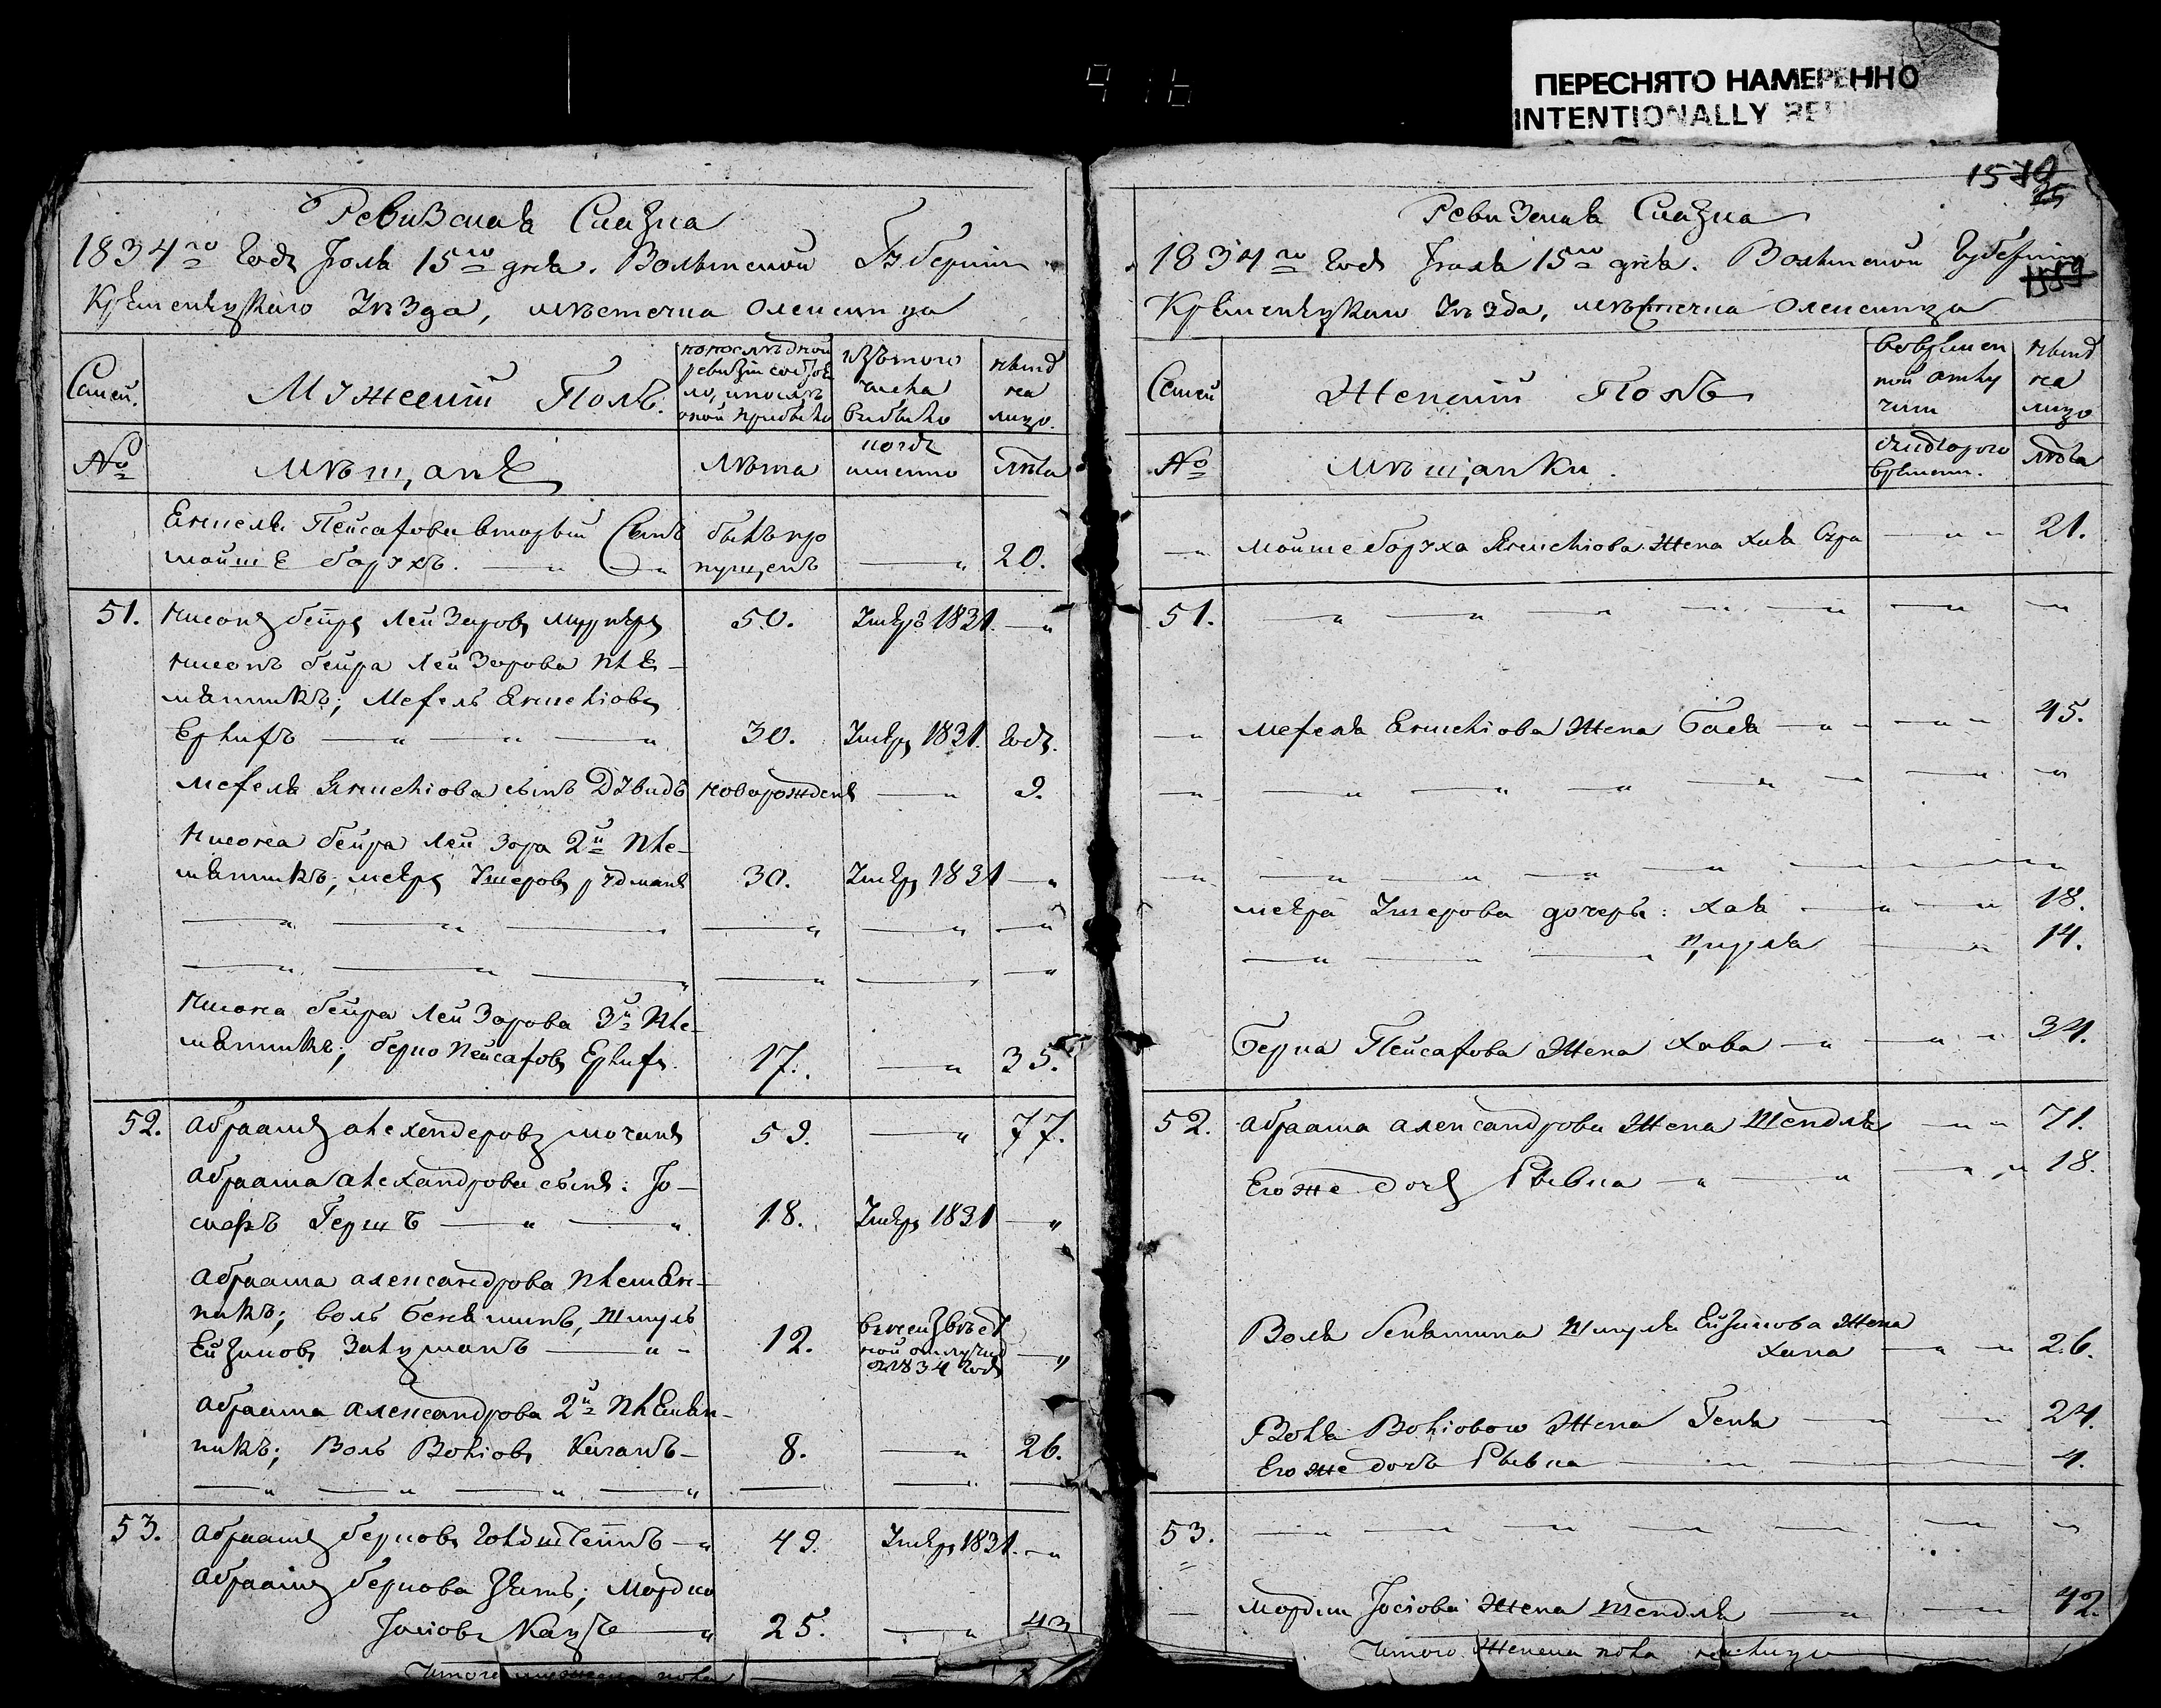 916
ПЕРЕСНЯТО НАМЕРЕННО
INTENTIONALLY
Ревизская Сказка
1834го Года Июля 15го дня. Волынской Губернии
Кременецкаго Уезда, местечка Олексинца
Семьи.
Мужеский Полъ.
по последней
ревизии состоя
ло, и после
оной прибыло
изъ того
числа
выбыло
ныне
на
лицо.
№
Мещане
Лета
когда
именно
Лета
Янкеля Пейсахова вторый Сынъ
Мошке Борухъ.
былъ про
пущенъ
20.
51.
Нисонъ бейръ Лейзеровъ
50.
Умеръ 1831.
Нисонъ бейра Лейзерова пле-
мянникъ; Мехель Янкелiовъ
Ерлихъ
30.
Умеръ 1831. года.
Мехеля Янкелiова сынъ Дувидъ
новорожденъ
9.
Нисона бейра Лейзора 2й пле-
мянникъ; мееръ Ушеровъ
30.
Умеръ 1831
Нисона бейра Лейзорова 3й пле-
мянникъ; берко Пейсаховъ Ерлихъ.
17.
35.
52.
Абрамъ
59.
77.
Абрама Александрова сынъ: Iо-
сифъ Гершъ
18.
Умеръ 1831
Абрама Александрова племян-
никъ; воль Беньяминъ, Шмуль
12.
1834 года
Абрама Александрова 2й племян-
никъ; Воль Волiовъ
8.
26.
53.
Абрамъ берковъ Голдштейнъ
49.
Умеръ 1831.
Абрама беркова зять; Мордко
Iосiовъ Кацъ
25.
43
Итого мужеска пола
1579
25
1559
Ревизская Сказка
1834го Года Июля 15го дня. Волынской Губернии
Кременецкаго Уезда, местечка Олексинца
Семьи
Женский Полъ
во времен
ной отлу
чки
ныне
на
лицо
№
Мещанки.
съ котораго
времени.
Лета
Мошке Боруха Янкелiова Жена Хая Сура
21.
51.
Мехеля Янкелiова Жена Бася
45.
меера Ушерова дочери: Хая
18.
Цируля
14.
Берка Пейсахова Жена Хава
34.
52.
Абрама Александрова Жена Шендля
71.
Его же дочь Рывка
18.
Воля Беньямина Шмуля Жена
Хана
26.
Воля Волiового Жена Геня
24.
Его же дочь Рывка
4.
53.
Мордки Iосiова Жена Шендля
42.
Итого Женска пола на лицо